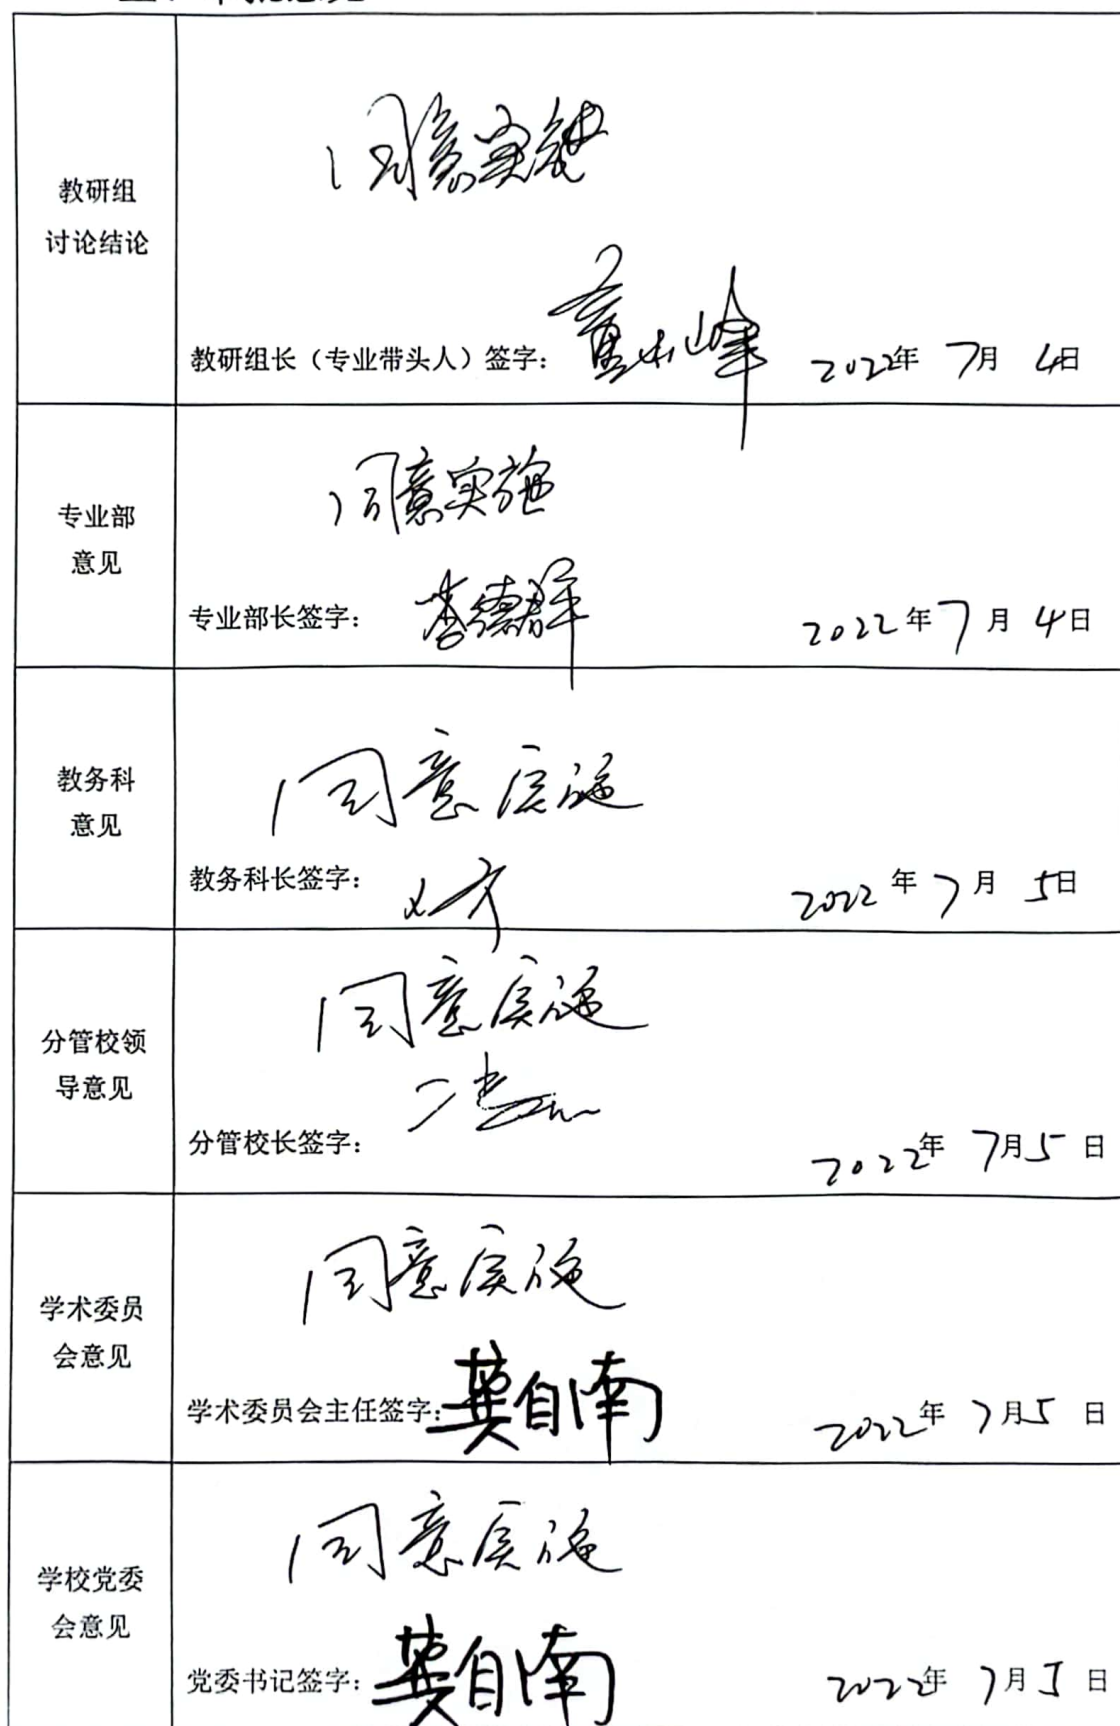 教研组
讨论结论
同意实施
教研组长（专业带头人）签字：
2022年 7月 4日
专业部
意见
同意实施
专业部长签字：李德群
2022年7月4日
教务科
意见
同意实施
教务科长签字：
2022年7月5日
分管校领
导意见
同意实施
分管校长签字：
2022年 7月5日
学术委员
会意见
同意实施
学术委员会主任签字：龚自南
2022年 7月5日
学校党委
会意见
同意实施
党委书记签字：龚自南
2022年 7月5日